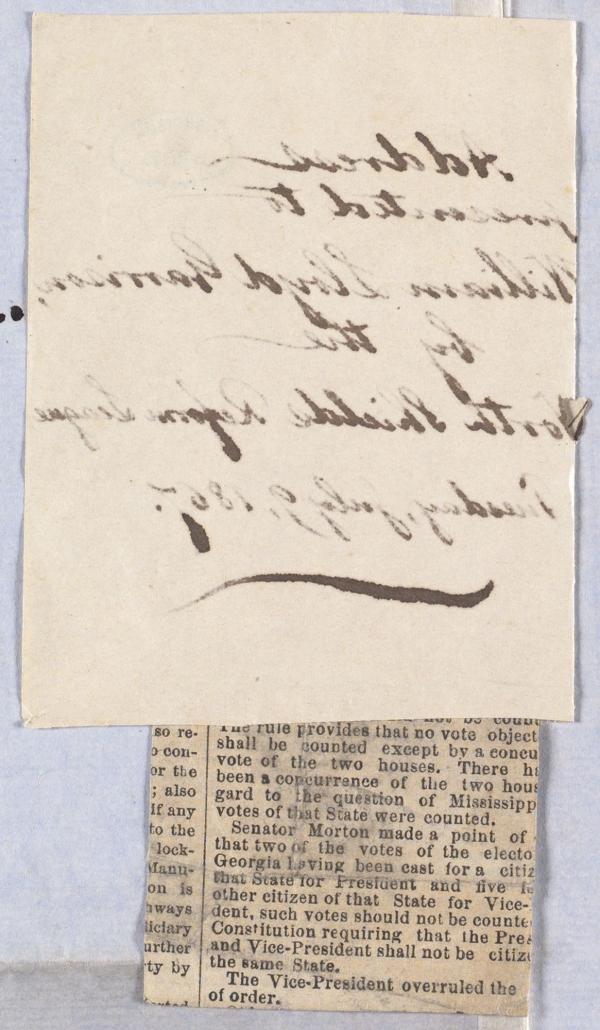 Address
presented to
William Lloyd Garrison,
by the
North Shields Reform League
Tuesday, July 9, 1867.
so re-
o con-
or the
; also
If any
to the
lock-
Manu-
on is
lways
liciary
urther
ty by
The rule provides that no vote object
shall be counted except by a concu
vote of the two houses. There ha
been a concurrence of the two hous
gard to the question of Mississipp
votes of that State were counted.
Senator Morton made a point of
that two of the votes of the electo
Georgia having been cast for a citiz
that State for President and five
other citizen of that State for Vice-
dent, such votes should not be counte
Constitution requiring that the Pres
and Vice-President shall not be citize
the same State.
The Vice-President overruled the
of order.